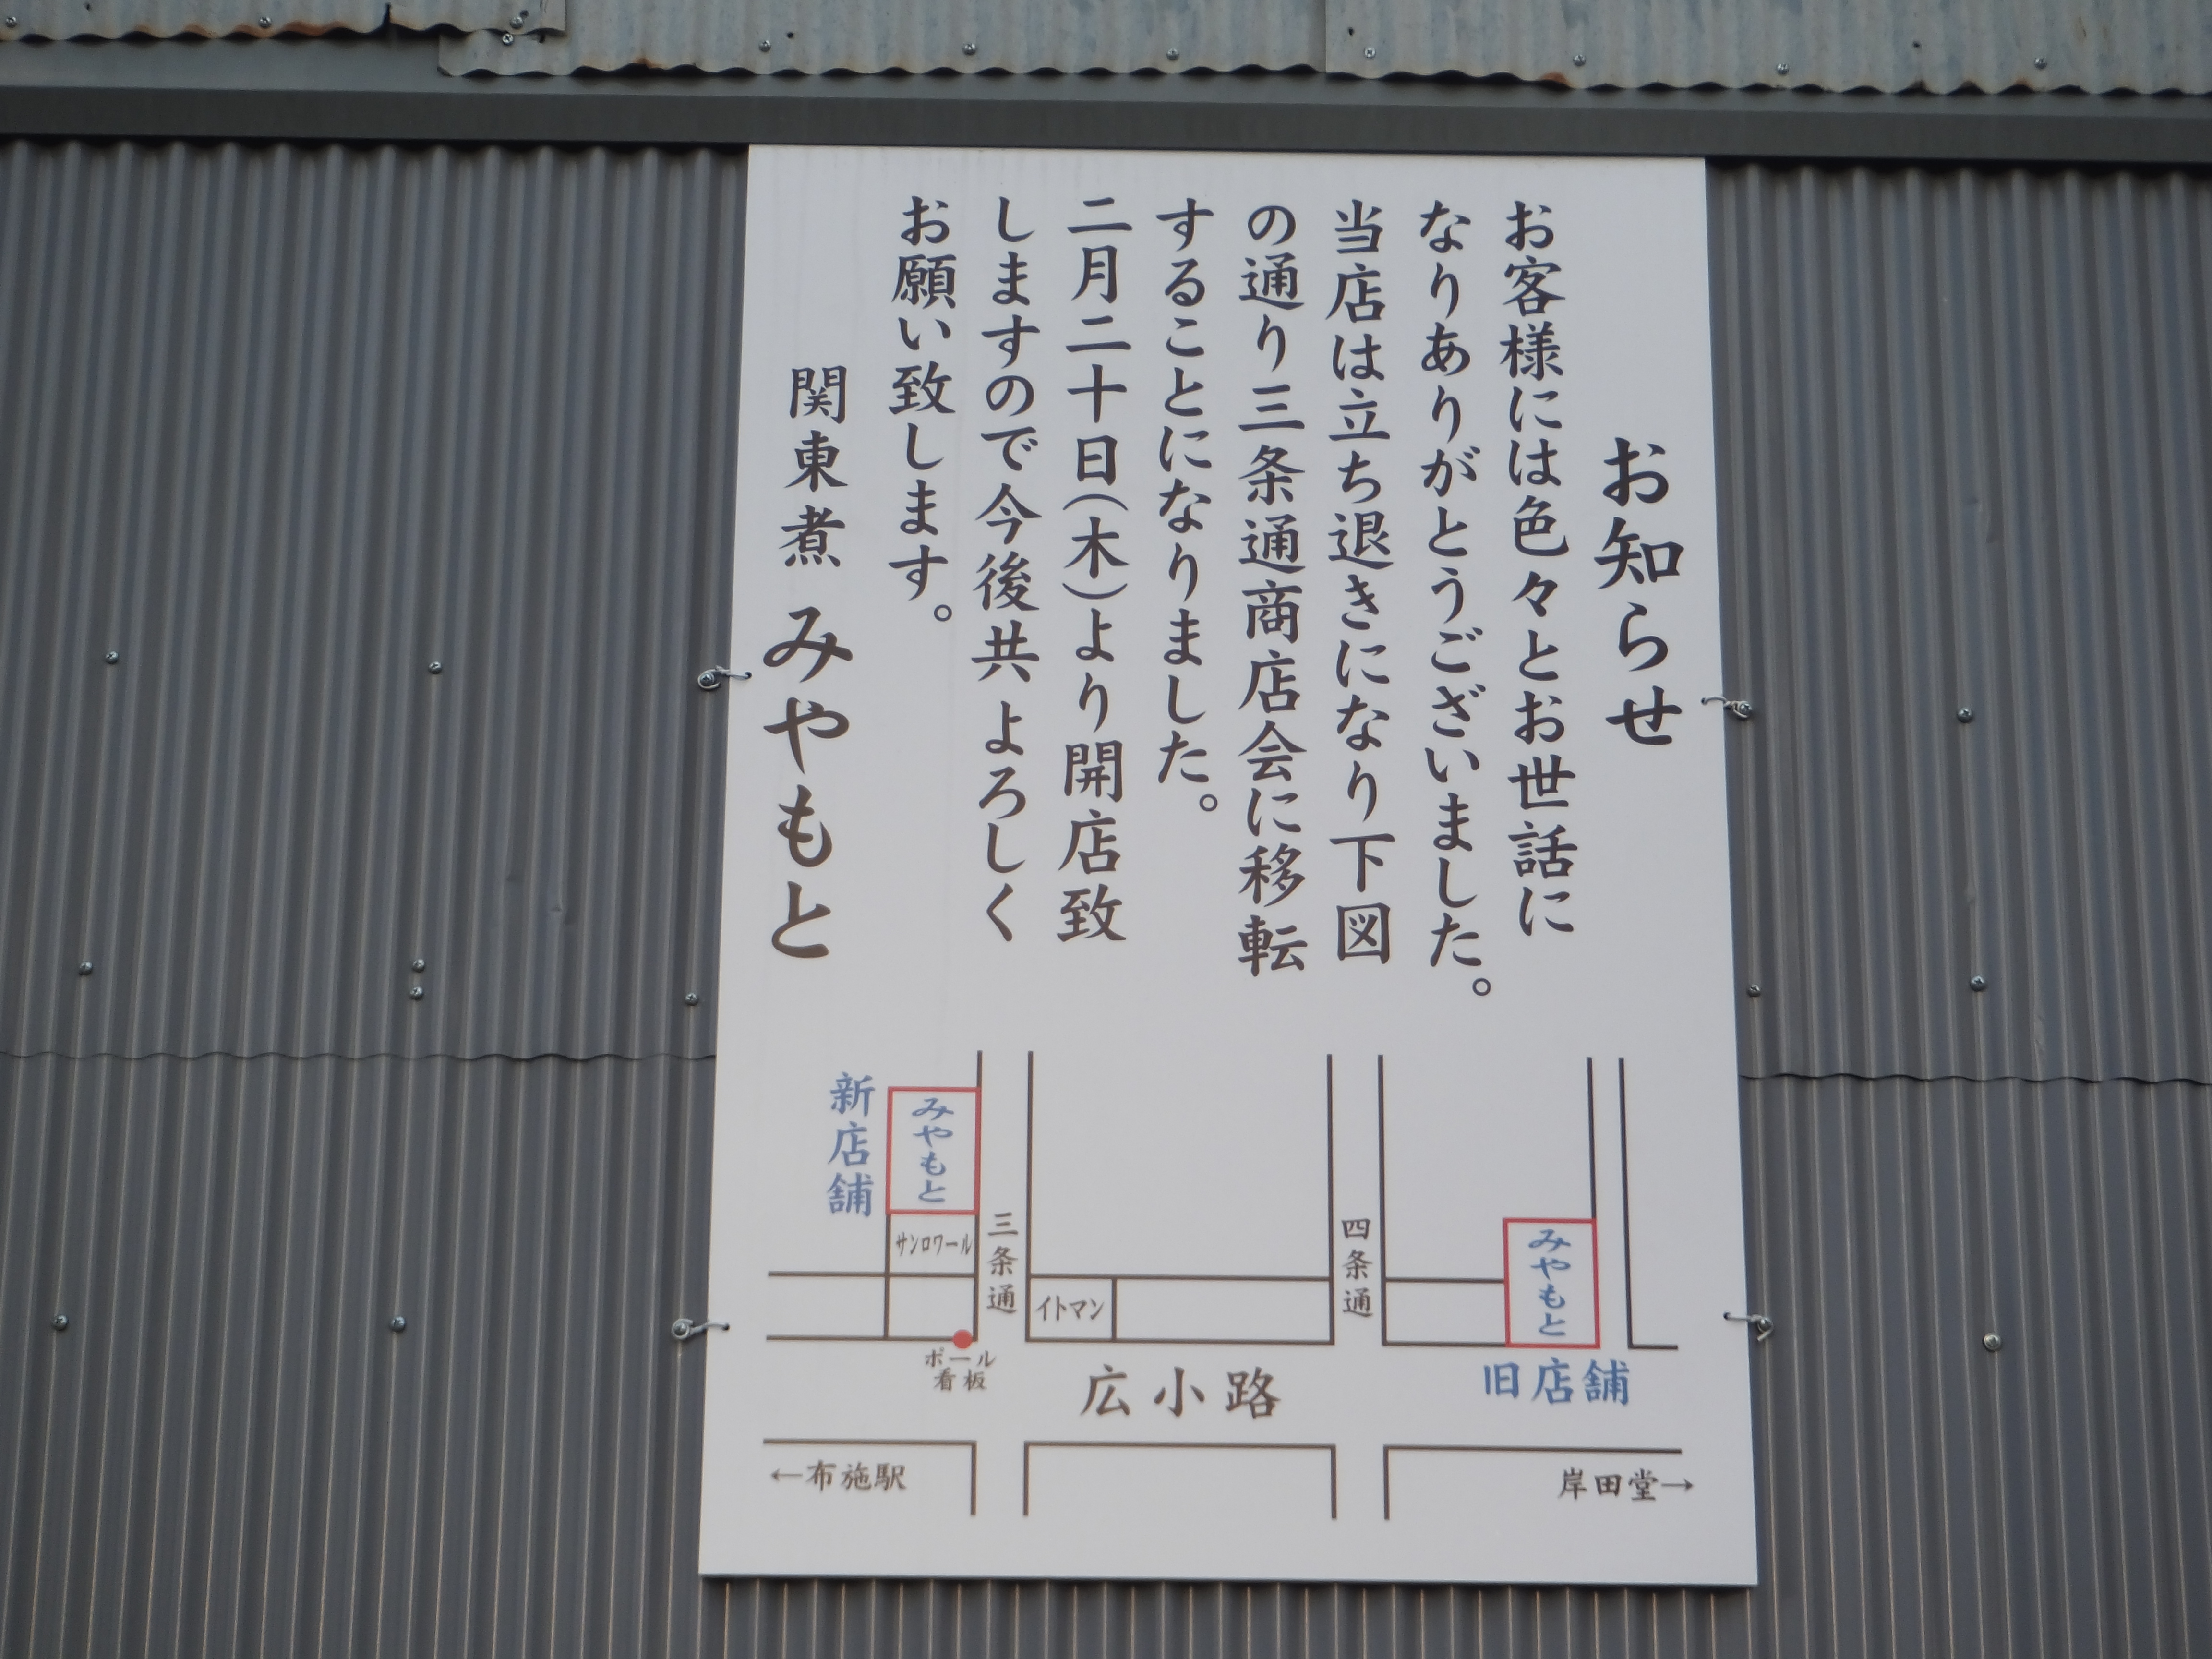 お知らせ
お客様には色々とお世話に
なりありがとうございました。
当店は立ち退きになり下図
の通り三条通商店会に移転
することになりました。
二月二十日(木)より開店致
しますので今後共よろしく
お願い致します。
関東煮 みやもと
新店舗
みやもと
サンロワール
三条通
イトマン
四条通
みやもと
旧店舗
ポール
看板
広小路
←布施駅
岸田堂→